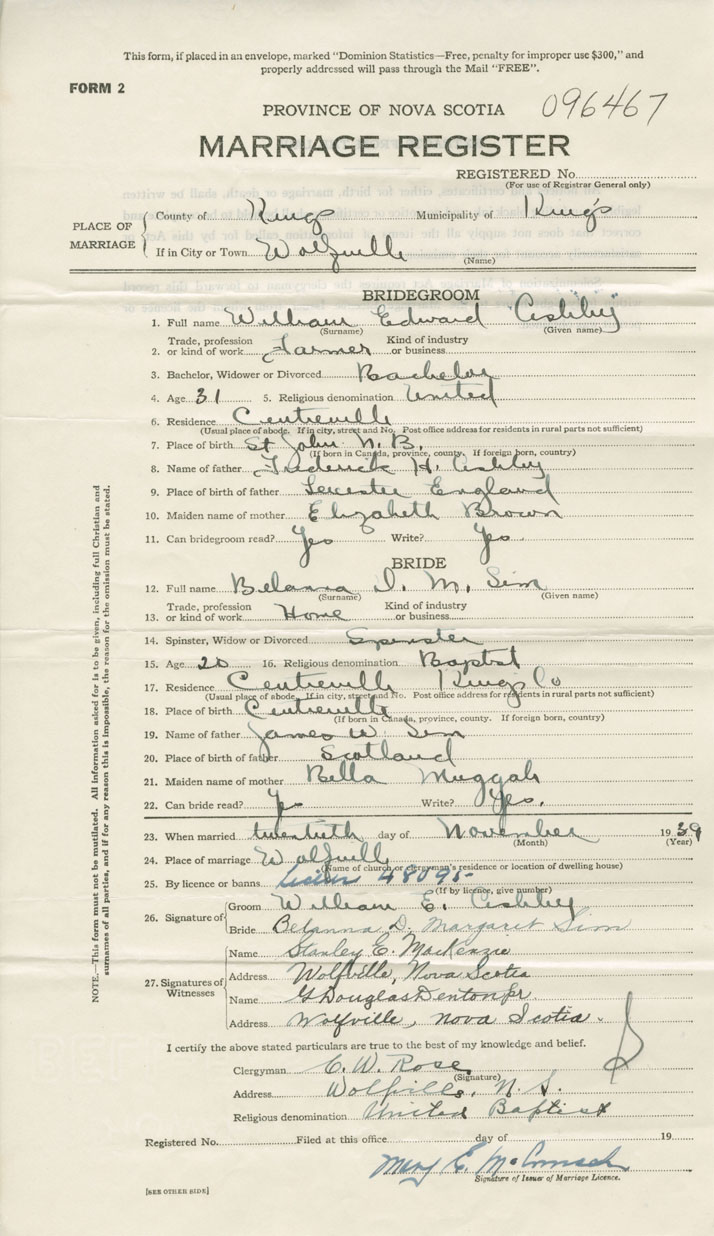 This form, if placed in an envelope, marked "Dominion Statistics—Free, penalty for improper use $300," and
properly addressed will pass through the Mail "FREE".
FORM 2
PROVINCE OF NOVA SCOTIA 096467
MARRIAGE REGISTER
REGISTERED No.
(For use of Registrar General only)
PLACE OF MARRIAGE
County of Kings Municipality of King's
If in City or Town Wolfville
(Name)
BRIDEGROOM
1. Full name William Edward "Ashby"
(Surname) (Given name)
2. Trade, profession or kind of work Farmer Kind of industry or business
3. Bachelor, Widower or Divorced Bachelor
4. Age 31 5. Religious denomination United
6. Residence Centreville
(Usual place of abode. If in city, street and No. Post office address for residents in rural parts not sufficient)
7. Place of birth St John N. B.
(If born in Canada, province, county. If foreign born, country)
8. Name of father Frederick H. Ashby
9. Place of birth of father Leicester England
10. Maiden name of mother Elizabeth Brown
11. Can bridegroom read? Yes Write? Yes
BRIDE
12. Full name Belanna D. M. Sim
(Surname) (Given name)
13. Trade, profession or kind of work Home Kind of industry or business
14. Spinster, Widow or Divorced Spinster
15. Age 20 16. Religious denomination Baptist
17. Residence Centreville Kings Co
(Usual place of abode. If in city, street and No. Post office address for residents in rural parts not sufficient)
18. Place of birth Centreville
(If born in Canada, province, county. If foreign born, country)
19. Name of father James W Sim
20. Place of birth of father Scotland
21. Maiden name of mother Bella Muggah
22. Can bride read? Yes Write? Yes.
23. When married twentieth day of November 1939
(Month) (Year)
24. Place of marriage Wolfville
(Name of church or clergyman's residence or location of dwelling house)
25. By licence or banns 48095
(If by licence, give number)
26. Signature of
Groom William E. Ashby
Bride Belanna D. Margaret Sim
27. Signatures of Witnesses
Name Stanley E. MacKenzie
Address Wolfville, Nova Scotia
Name G Douglas Denton Jr.
Address Wolfville, Nova Scotia.
I certify the above stated particulars are true to the best of my knowledge and belief.
Clergyman C. W. Rose
(Signature)
Address Wolfville, N. S.
Religious denomination United Baptist
Registered No. Filed at this office day of 19
Mary E.
Signature of Issuer of Marriage Licence.
[SEE OTHER SIDE]
NOTE.—This form must not be mutilated. All information asked for is to be given, including full Christian and
surnames of all parties, and if for any reason this is impossible, the reason for the omission must be stated.